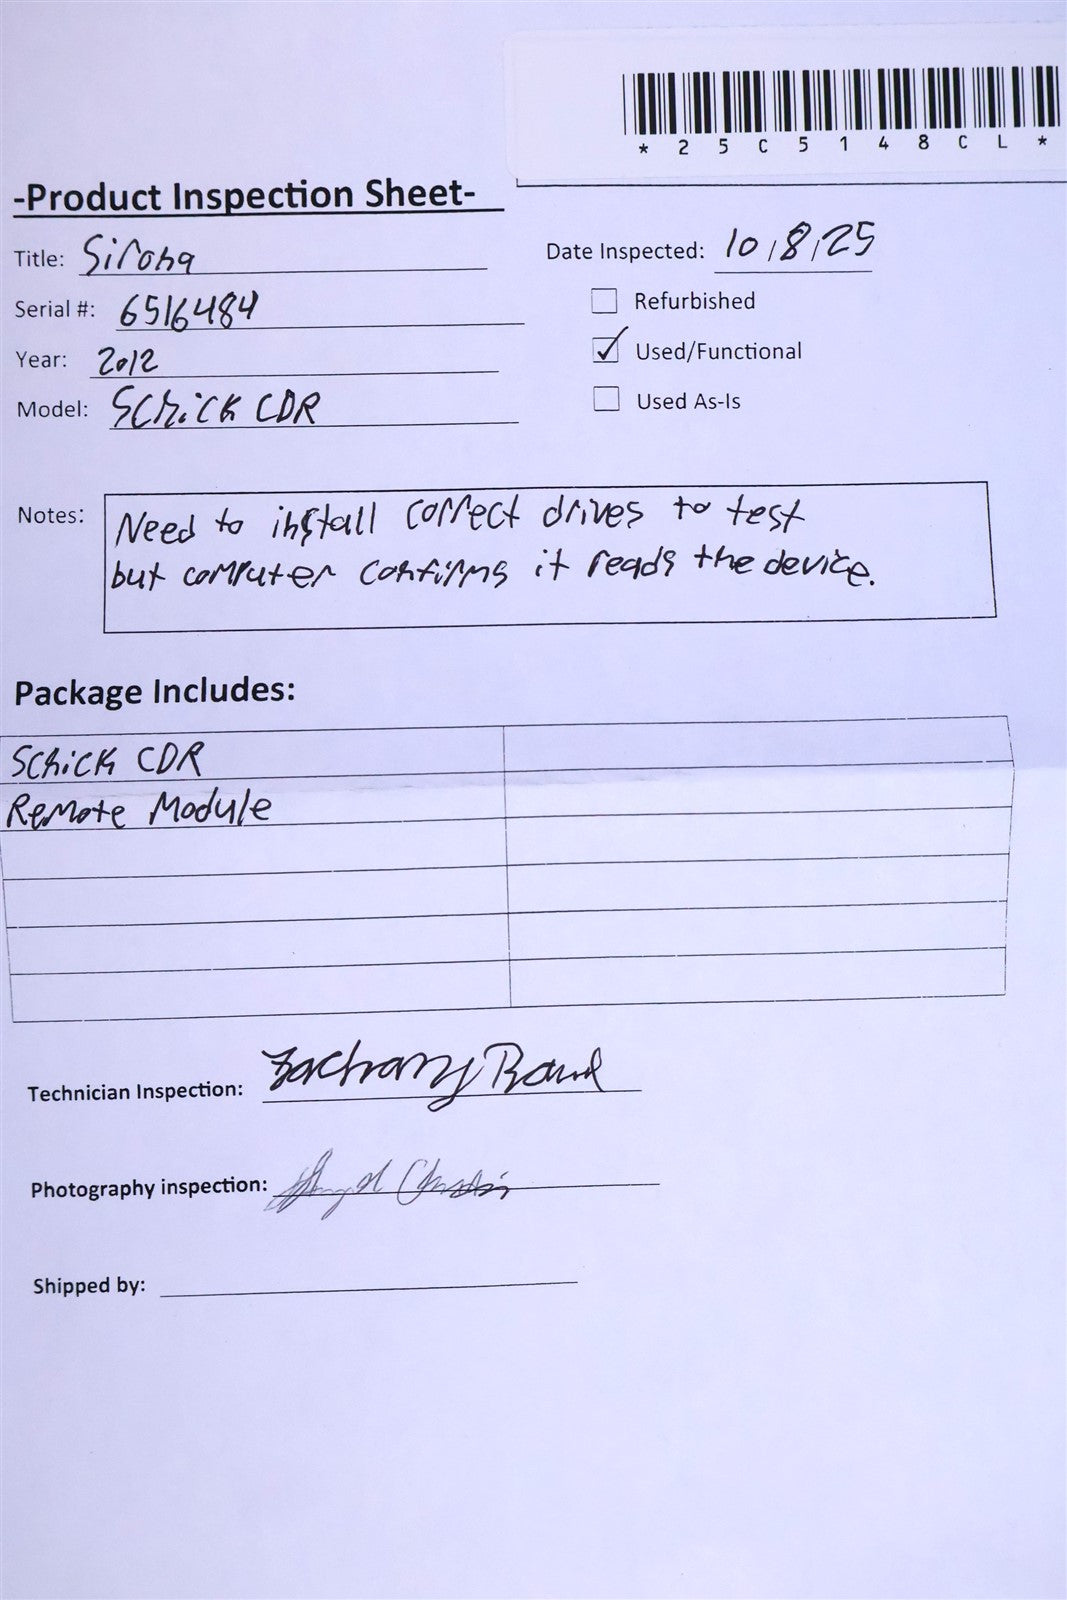 * 2 5 C 5 1 4 8 C L *
-Product Inspection Sheet-
Title: Sirona
Date Inspected: 10/8/25
Serial #: 6516484
Refurbished
Year: 2012
Used/Functional
Model: Schick CDR
Used As-Is
Notes: Need to install correct drives to test
but computer confirms it reads the device.
Package Includes:
Schick CDR
Remote Module
Technician Inspection: Zachary
Photography inspection:
Shipped by: